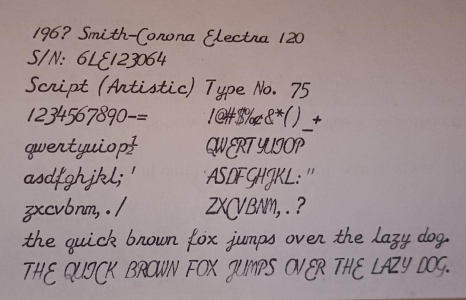 196? Smith-Corona Electra 120
S/N: 6LE123064
Script (Artistic) Type No. 75
1234567890-= !@#$%¢&*()_+
qwertyuiop½ QWERTYUIOP
asdfghjkl;' ASDFGHJKL:"
zxcvbnm,./ ZXCVBNM,.?
the quick brown fox jumps over the lazy dog.
THE QUICK BROWN FOX JUMPS OVER THE LAZY DOG.